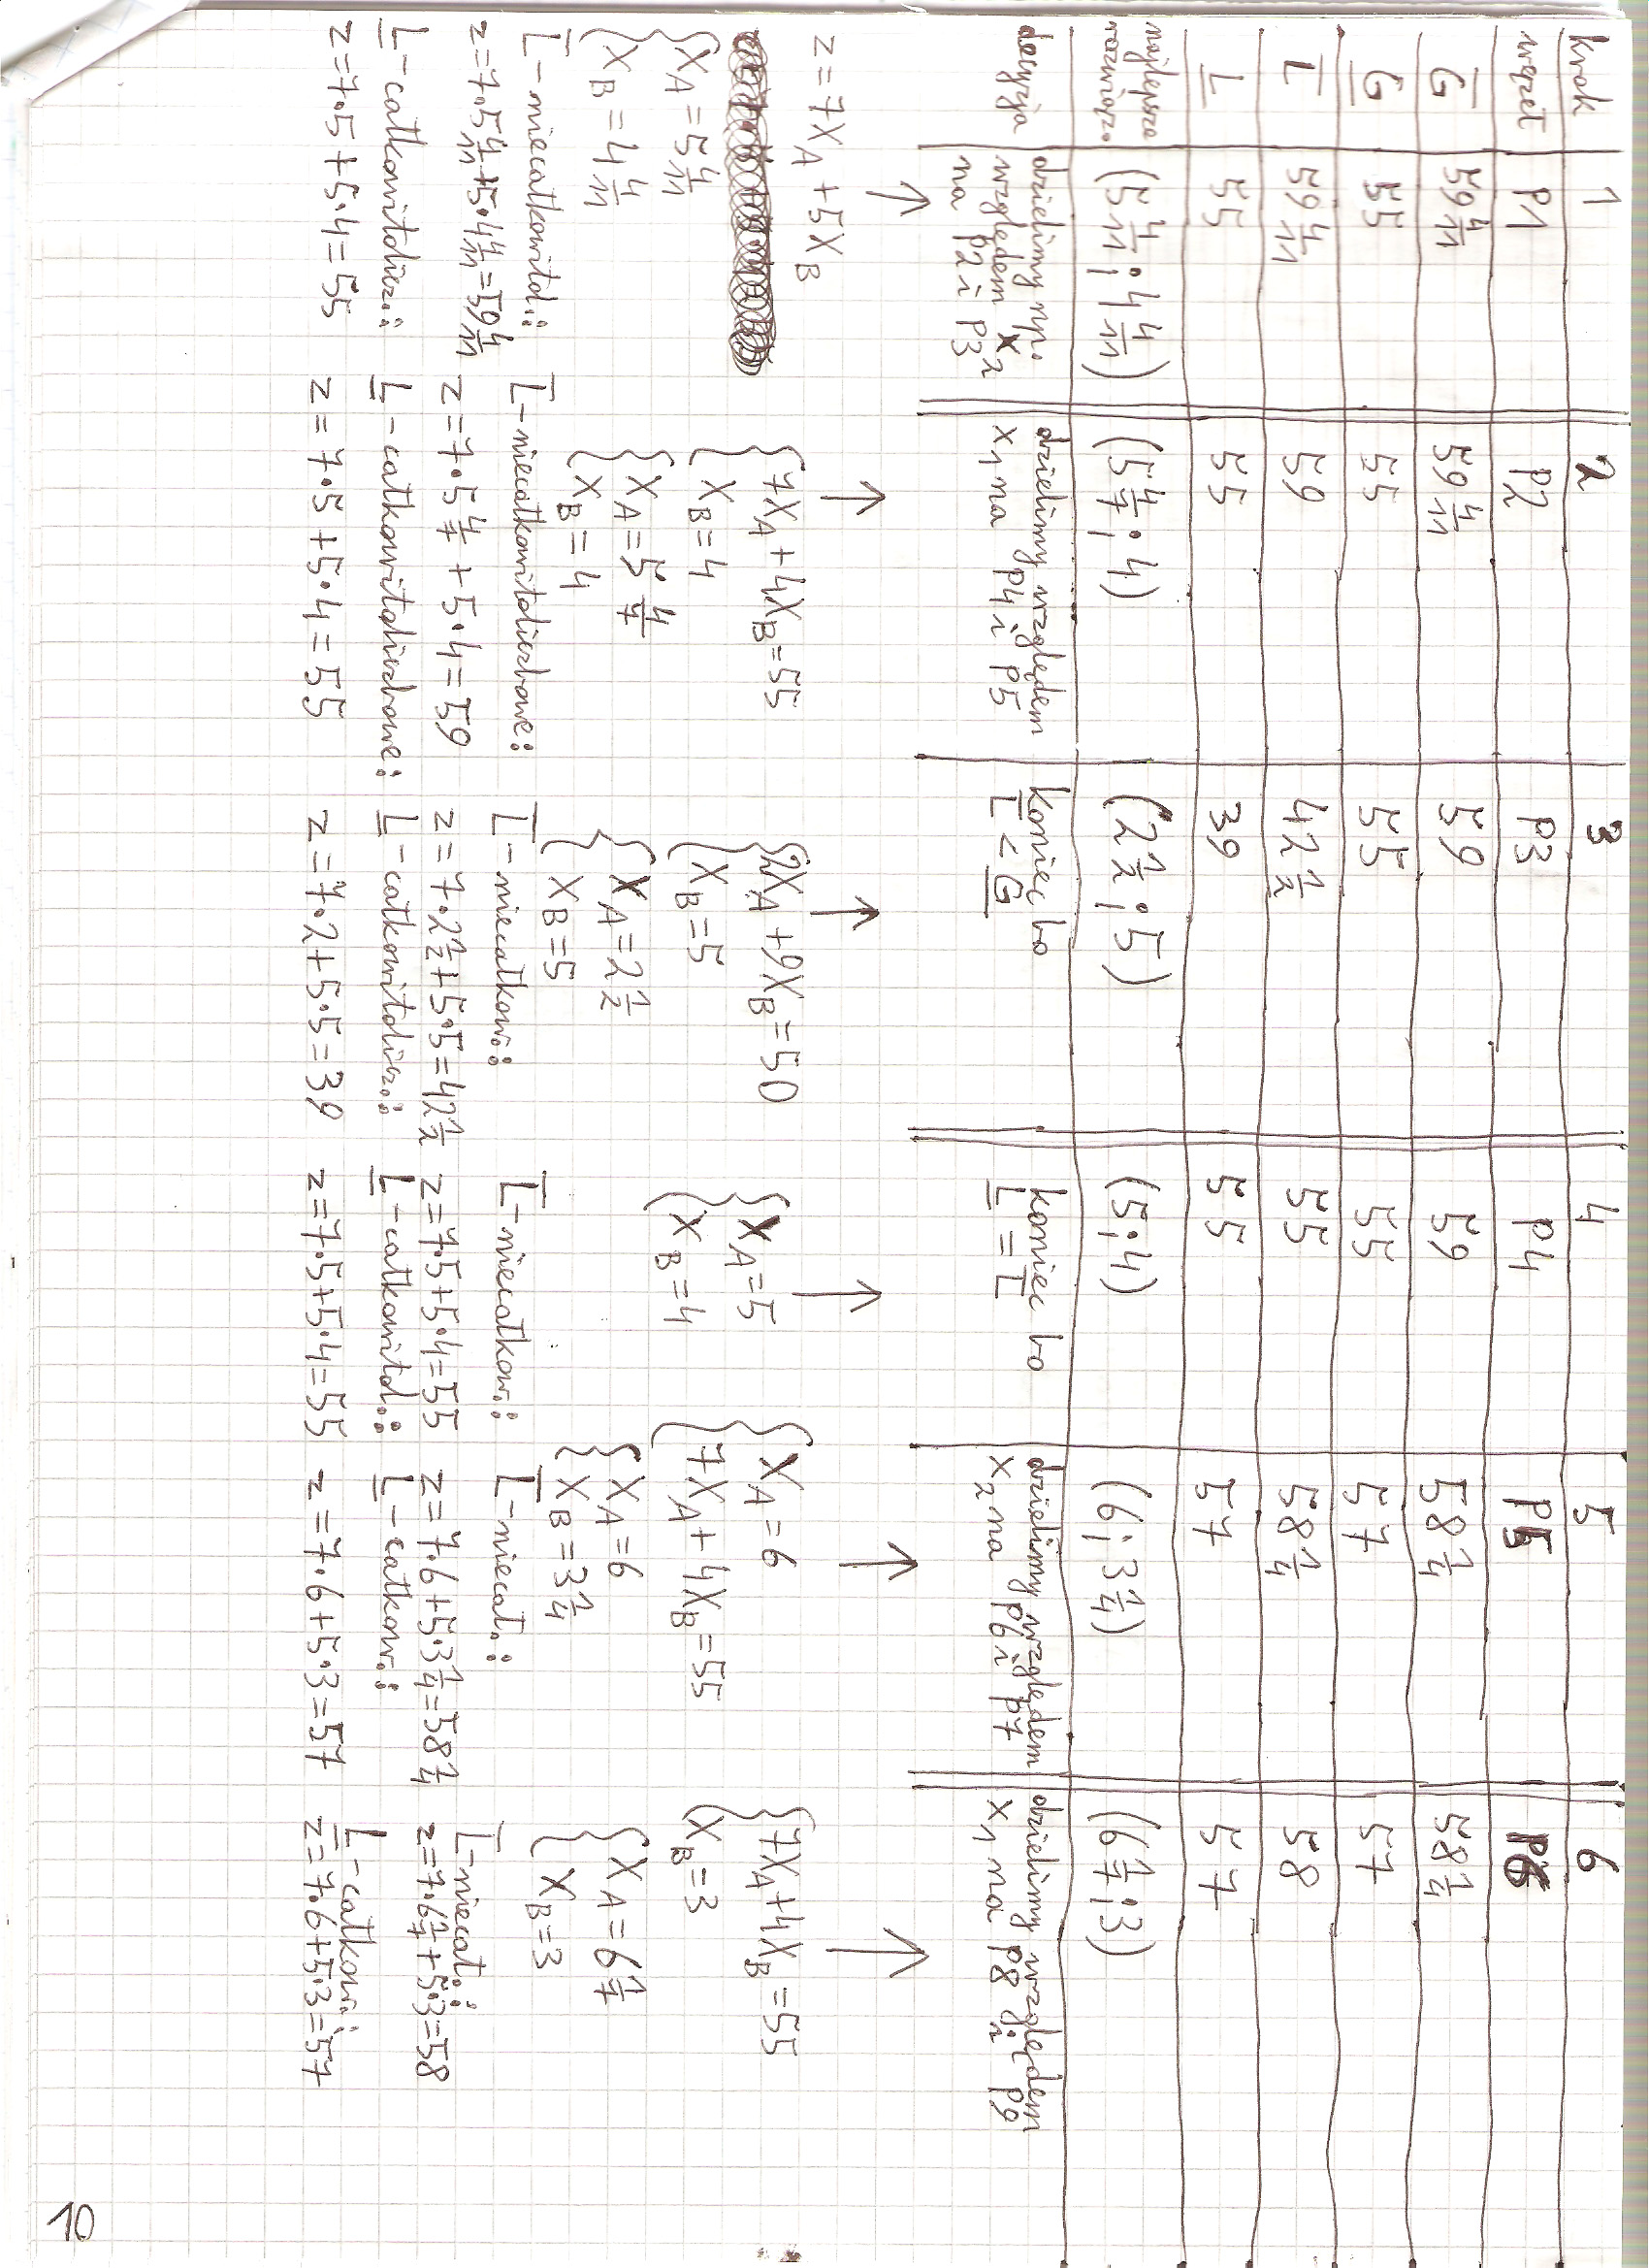 krok 1 2 3 4 5 6
węzeł P1 P2 P3 P4 P5 P6
G̅ 59 4/11 59 4/11 59 59 58 1/4 58 1/4
G̲ 55 55 55 55 57 57
L̅ 59 4/11 59 42 1/2 55 58 1/4 58
L̲ 55 55 39 55 57 57
najlepsze rozwiąza. (5 4/11; 4 4/11) (5 4/7; 4) (2 1/2; 5) (5; 4) (6; 3 1/4) (6 1/7; 3)
decyzja
dzielimy np.
względem x₂
na P2 i P3
dzielimy względem
x₁ na P4 i P5
koniec bo
L̅ < G̲
koniec bo
L̲ = L̅
dzielimy względem
x₂ na P6 i P7
dzielimy względem
x₁ na P8 i P9
z = 7X_A + 5X_B
X_A = 5 4/11
X_B = 4 4/11
L̅ - niecałkowitol.:
z = 7·5 4/11 + 5·4 4/11 = 59 4/11
L̲ - całkowitolicz.:
z = 7·5 + 5·4 = 55
7X_A + 4X_B = 55
X_B = 4
X_A = 5 4/7
X_B = 4
L̅ - niecałkowitoliczbowe:
z = 7·5 4/7 + 5·4 = 59
L̲ - całkowitoliczbowe:
z = 7·5 + 5·4 = 55
2X_A + 9X_B = 50
X_B = 5
X_A = 2 1/2
X_B = 5
L̅ - niecałkow.:
z = 7·2 1/2 + 5·5 = 42 1/2
L̲ - całkowitolicz.:
z = 7·2 + 5·5 = 39
X_A = 5
X_B = 4
L̅ - niecałkow.:
z = 7·5 + 5·4 = 55
L̲ - całkowitol.:
z = 7·5 + 5·4 = 55
X_A = 6
7X_A + 4X_B = 55
X_A = 6
X_B = 3 1/4
L̅ - niecał.:
z = 7·6 + 5·3 1/4 = 58 1/4
L̲ - całkow.:
z = 7·6 + 5·3 = 57
7X_A + 4X_B = 55
X_B = 3
X_A = 6 1/7
X_B = 3
L̅ - niecał.:
z = 7·6 1/7 + 5·3 = 58
L̲ - całkow.:
z = 7·6 + 5·3 = 57
10